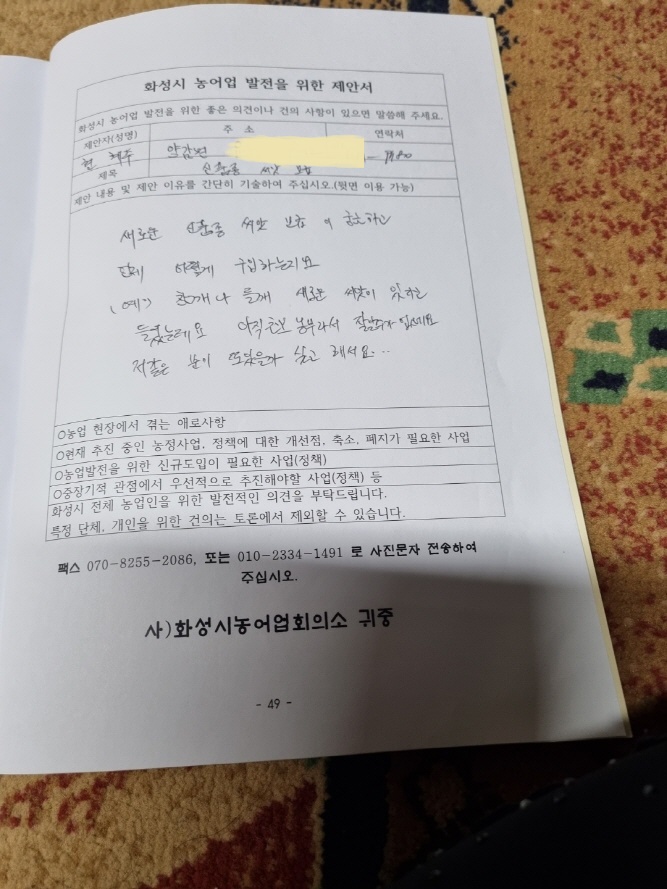 화성시 농어업 발전을 위한 제안서
화성시 농어업 발전을 위한 좋은 의견이나 건의 사항이 있으면 말씀해 주세요.
제안자(성명) 주 소 연락처
현 양감면
제목 신품종 씨앗 보급
제안 내용 및 제안 이유를 간단히 기술하여 주십시오.(뒷면 이용 가능)
새로운 신품종 씨앗 보급이 궁금하고
단체 어떻게 구입하는지요
(예) 콩이나 들깨 새로운 씨앗이 있다고
들었는데요 아직 초보 농부라서 잘
저같은 분이 또 있을까 싶고 해서요...
○농업 현장에서 겪는 애로사항
○현재 추진 중인 농정사업, 정책에 대한 개선점, 축소, 폐지가 필요한 사업
○농업발전을 위한 신규도입이 필요한 사업(정책)
○중장기적 관점에서 우선적으로 추진해야할 사업(정책) 등
화성시 전체 농업인을 위한 발전적인 의견을 부탁드립니다.
특정 단체, 개인을 위한 건의는 토론에서 제외할 수 있습니다.
팩스 070-8255-2086, 또는 010-2334-1491 로 사진문자 전송하여
주십시오.
사)화성시농어업회의소 귀중
- 49 -